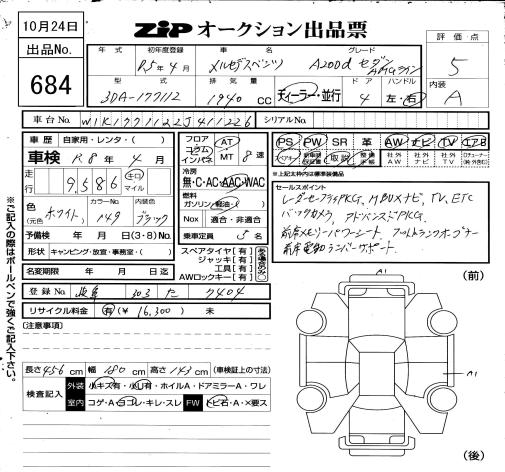 10月24日
ZIP オークション出品票
出品No.
684
年式 初年度登録 車名 グレード
R5年4月 メルセデスベンツ A200d セダン
AMGライン
型式 排気量 ドア ハンドル
3DA-177112 1940 CC ディーラー・並行 4 左・右
評価点
5
内装
A
車台No. W1K1771122J411226 シリアルNo.
車歴 自家用・レンタ・( )
車検 R8年4月
走行 9,586 キロ マイル
色 (元色) ホワイト カラーNo. 149 内装色 ブラック
予備検 年 月 日(3・8)No.
形状 キャンピング・放宣・事務室・( )
名変期限 年 月 日迄
フロア コラム インパネ AT MT 8速
冷房
無・C・AC・AAC・WAC
燃料
ガソリン・軽油・( )
Nox 適合・非適合
乗車定員 5名
スペアタイヤ[有]
ジャッキ[有]
工具[有]
AWロックキー[有]
PS PW SR 革 AW ナビ TV エアB
取説
社外AW 社外ナビ 社外TV
※上記太枠内は標準装備品
セールスポイント
レーダーセーフティPKG, MBUXナビ, TV, ETC
バックカメラ, アドバンスドPKG
前席メモリーパワーシート, フットトランクオープナー
前席電動ランバーサポート
登録No. 303 た 7404
リサイクル料金 有(¥ 16,300) 未
(注意事項)
長さ 456 cm 幅 180 cm 高さ 143 cm (車検証上の寸法)
検査記入 外装 小キズ有・小凹有・ホイルA・ドアミラーA・ワレ
室内 コゲ・A・ヨゴレ・キレ・スレ FW トビ石・A・×要ス
※ご記入の際はボールペンで強くご記入下さい。
A1
(前)
A1
(後)